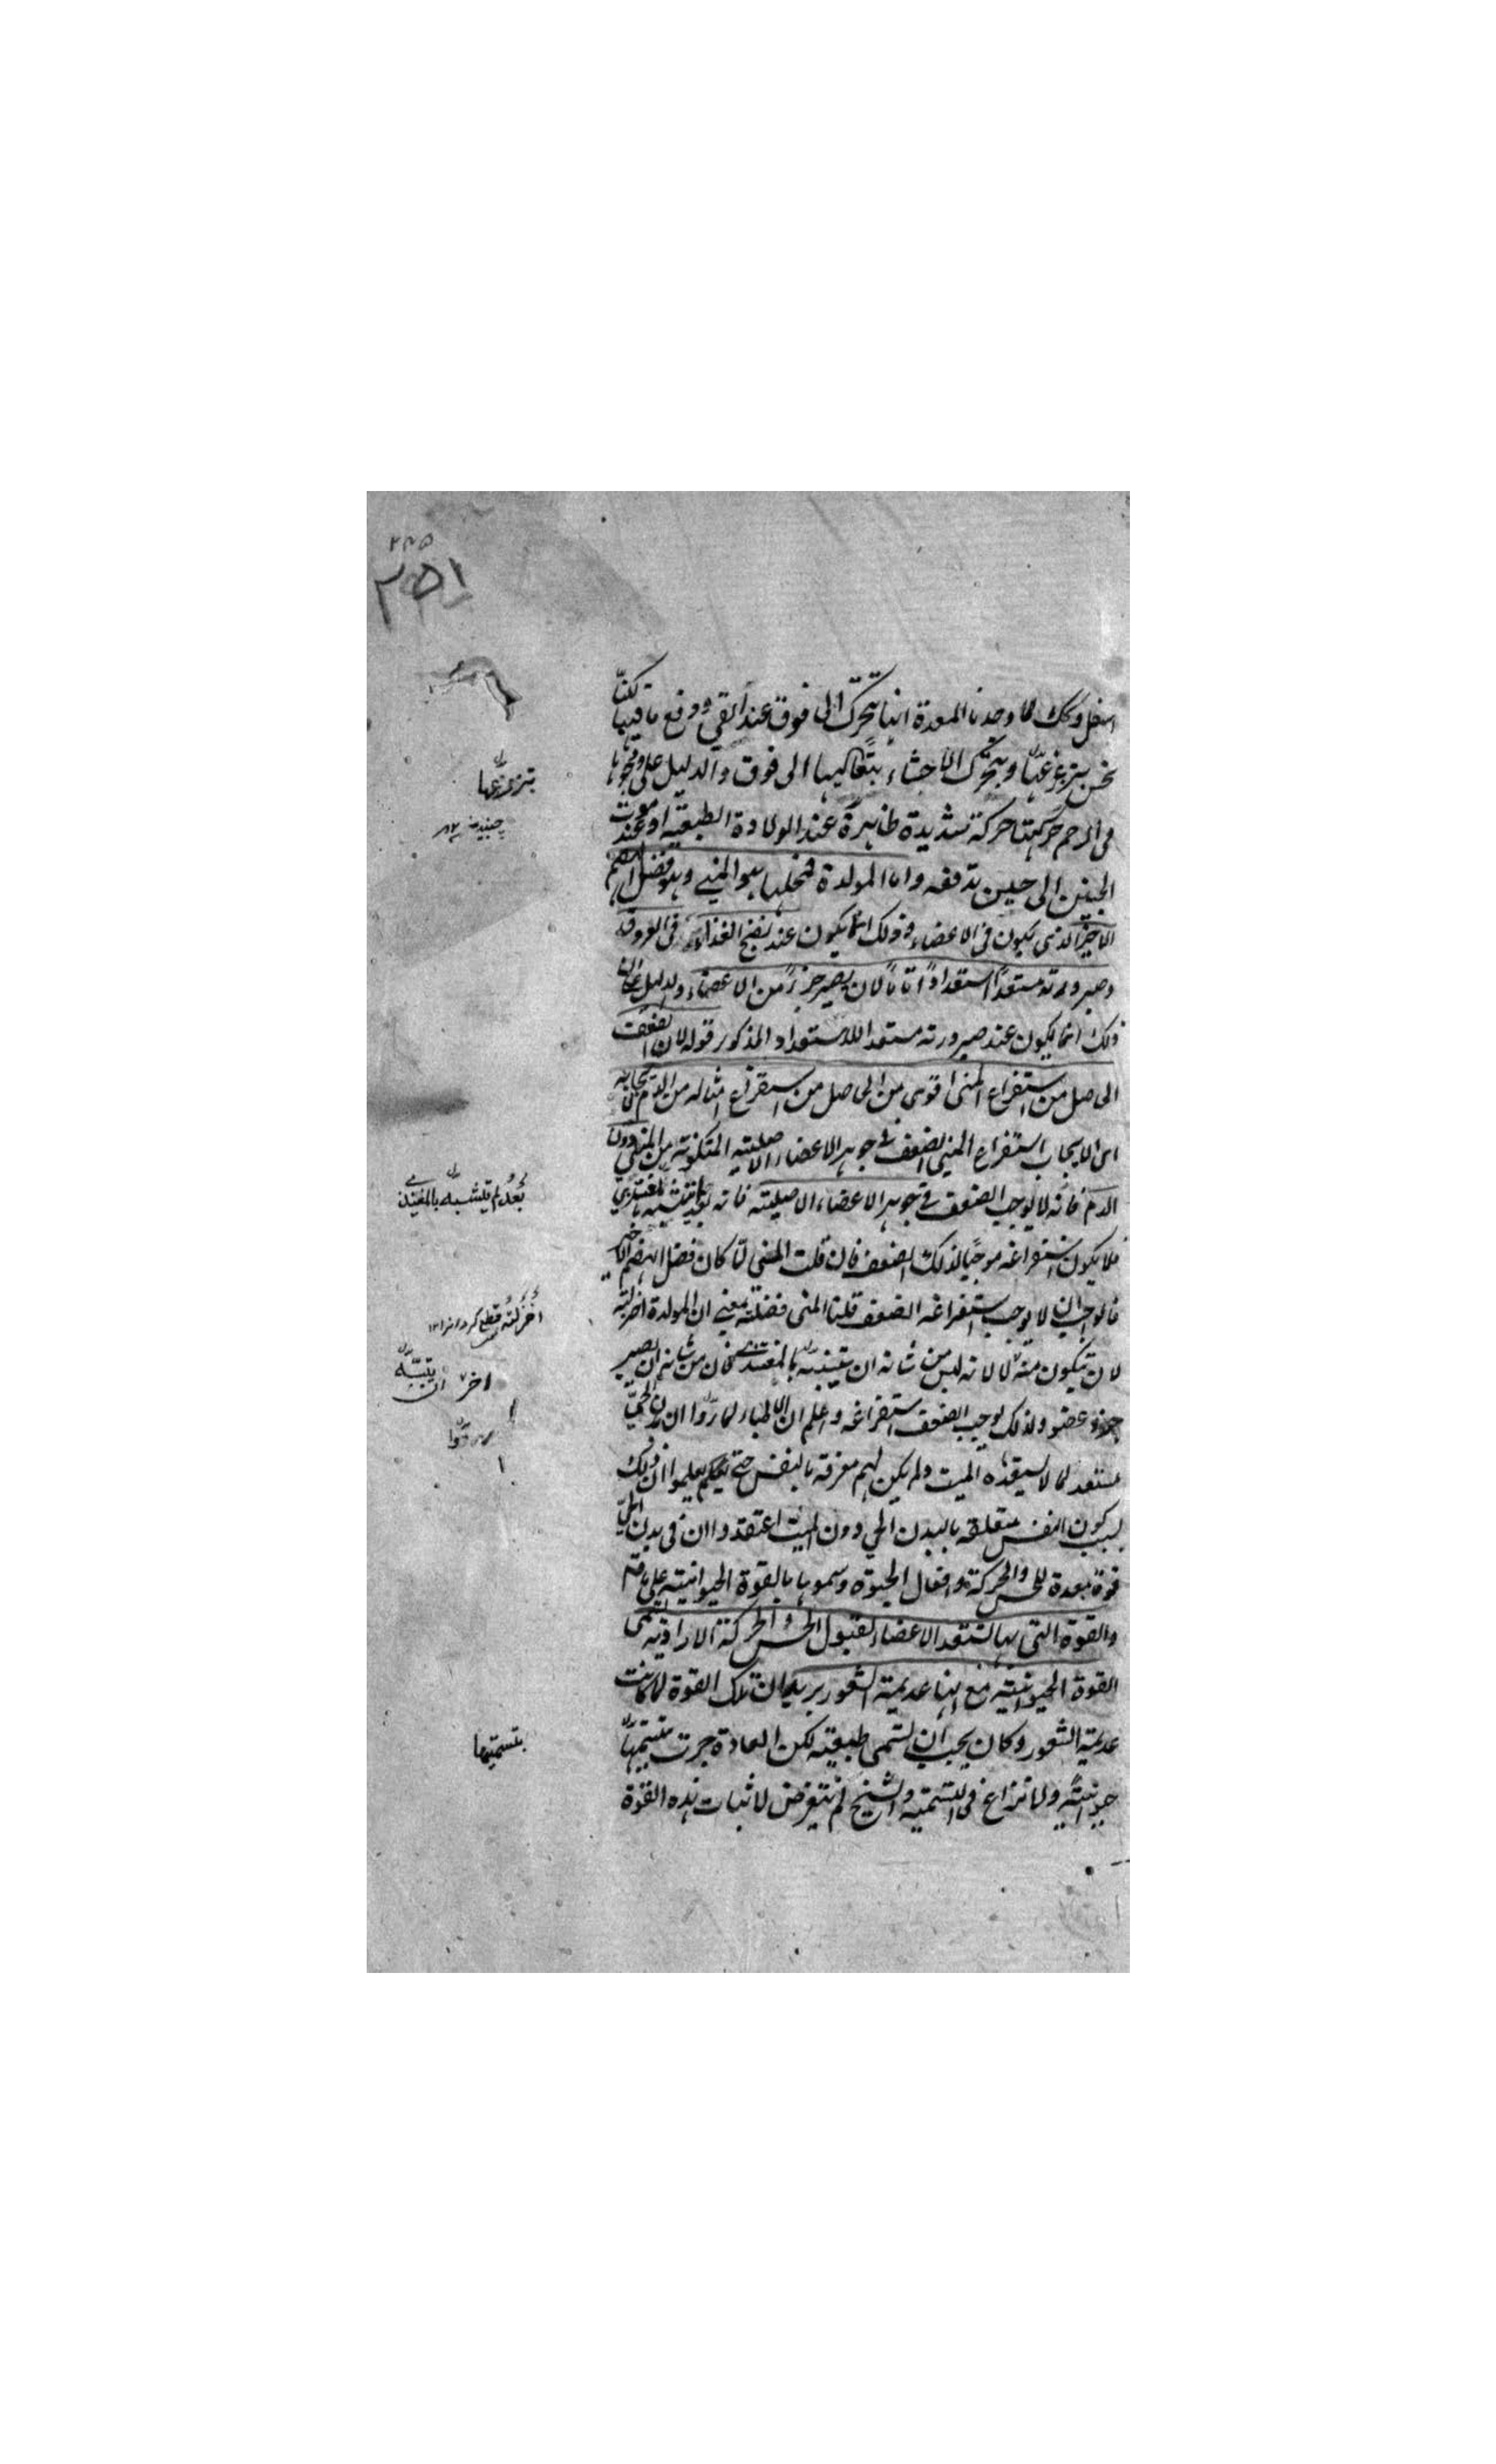 ۲۴۵
۲۵۱
اسفل وكك لما وجدنا المعدة انها تتحرك الى فوق عند القى ودفع ما فيها كنا
نحس بتزعزعها وبتحرك الاحشاء بتعاليها الى فوق والدليل على وجودها
فى الرحم حركتها حركة شديدة ظاهرة عند الولادة الطبيعية او عند موت
الجنين الى حين تدفعه واما المولدة فمحلها هو المنى وهو فضل الهضم
الاخير الذى يكون فى الاعضاء وذلك انما يكون عند نضج الغذاء فى العروق
وصيرورته مستعدا استعدادا تاما لان يصير جزءا من الاعضاء والدليل على ان
ذلك انما يكون عند صيرورته مستعدا للاستعداد المذكور قوله لان الضعف
الحاصل من استفراغ المنى اقوى من الحاصل من استفراغ امثاله من الدم لايجابه
اى لايجاب استفراغ المنى الضعف فى جوهر الاعضاء الاصلية المتكونة من المنى دون
الدم فانه لا يوجب الضعف فى جوهر الاعضاء الاصلية فانه بعد لم يتشبه بالمغتذى
فلا يكون استفراغه موجبا لذلك الضعف فان قلت المنى لما كان فضل الهضم الاخير
فالواجب ان لا يوجب استفراغه الضعف قلنا المنى فضلة بمعنى ان المولدة اخزلته
لان يتكون منه لا لانه ليس من شانه ان يتشبه بالمغتذى فان من شانه ان يصير
جزء عضو ولذلك يوجب الضعف استفراغه واعلم ان الاطباء لما راوا ان بدن الحى
مستعد لما لا يستعده الميت ولم يكن لهم معرفة بالنفس حتى يعلموا ان ذلك
لسبب كون النفس متعلقة بالبدن الحى دون الميت اعتقدوا ان فى بدن الحى
قوة معدة للحس والحركة وافعال الحيوة وسموها بالقوة الحيوانية على ما قال
والقوة التى بها تستعد الاعضاء لقبول الحس والحركة الارادية تسمى
القوة الحيوانية مع انها عديمة الشعور يريد ان تلك القوة لما كانت
عديمة الشعور وكان يجب ان تسمى طبيعية لكن العادة جرت بتسميتها
حيوانية ولا نزاع فى التسمية والشيخ لم يتعرض لاثبات هذه القوة
بتزعزعها
بعد لم يتشبه بالمغتذى
اخزلته قطع كرد
اخر ان يتشبه
بتسميتها